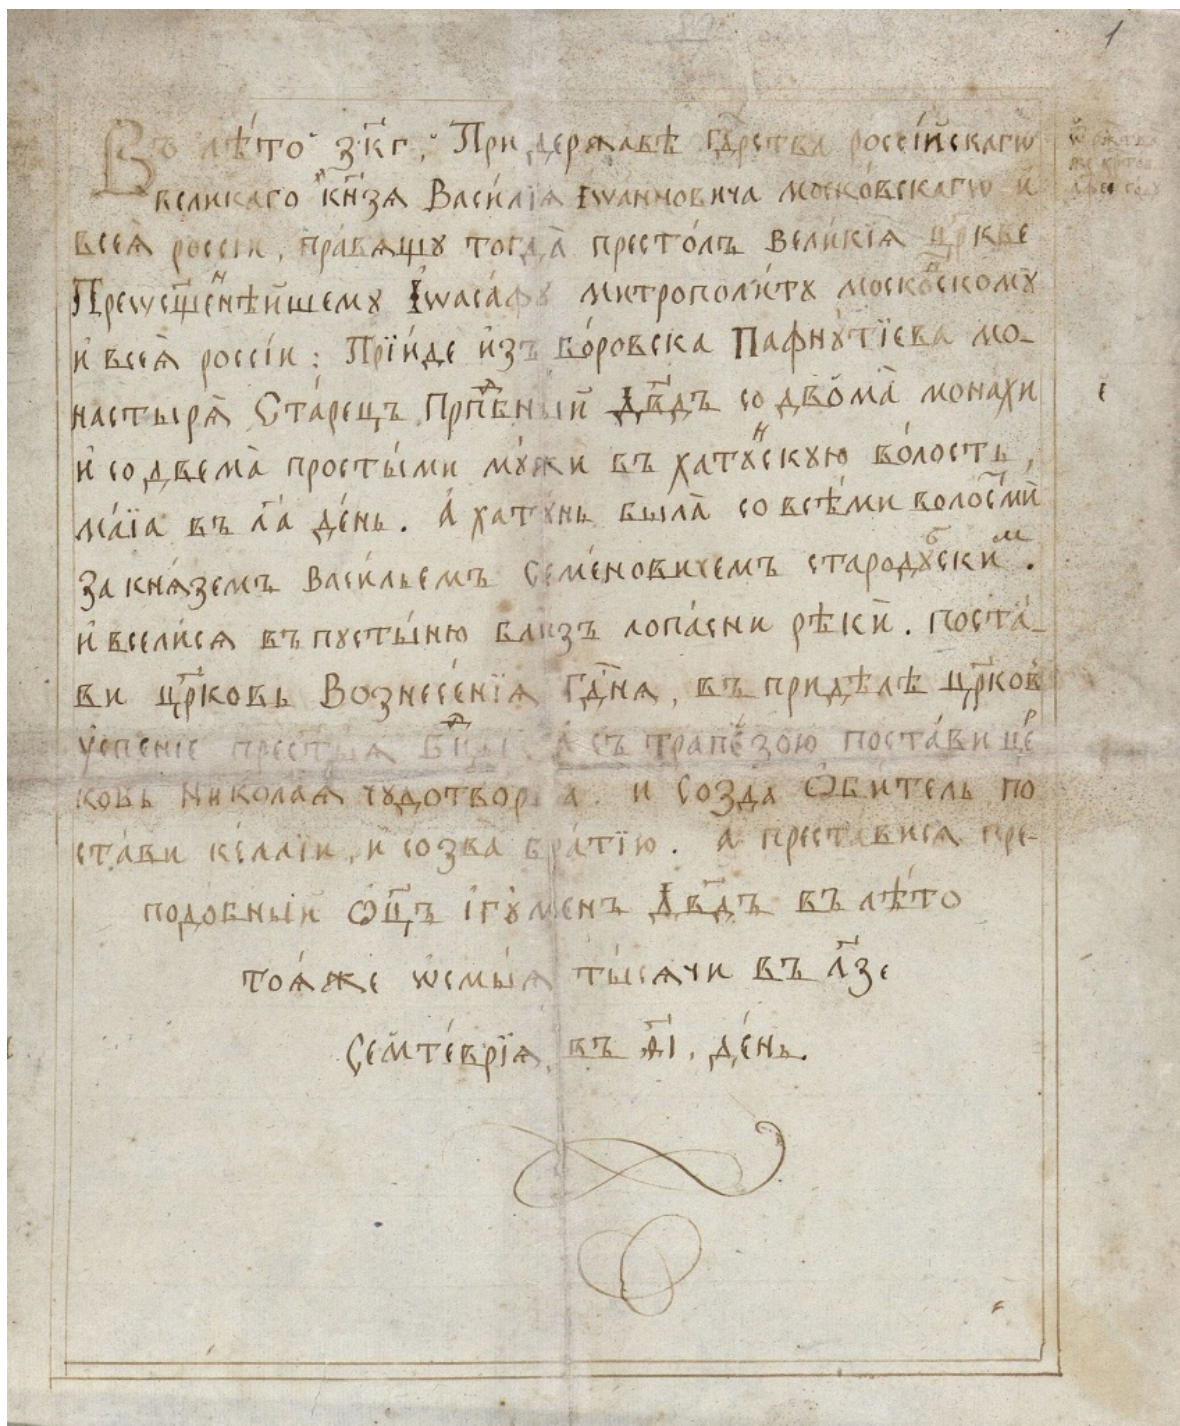 1
Въ лѣто ҂зк҃г, При державѣ гд҃рства россі́йскагѡ
великаго кн҃зя Васи́лїя Іѡанновича моско́вскагѡ и҆
всея̀ россіи, пра́вящу тогда̀ престо́лъ вели́кїя цр҃кве
Преѡсщ҃еннѣйшему Іѡаса́фу митрополи́ту моско́вскому
и҆ всея̀ россі́и: Прїи́де и҆зъ бо́ровска Пафну́тїева мо-
настыря̀ Ста́рецъ Прпⷣбный Дв҃дъ со двома̀ мона́хи
и҆ со двема̀ просты́ми му́жи въ хатꙋⷩскую во́лость,
ма́їа въ л҃а де́нь. А҆ хату́нь была̀ со всѣ́ми волосⷮми
за кня́земъ Васи́льемъ Семе́новичемъ стародꙋⷠскиⷨ.
и҆ всели́ся въ пусты́ню близъ лопа́сни рѣки̂. поста́-
ви цр҃ковь Вознесе́нїя Гд҃ня, въ придѣ́лѣ цр҃ковь
успе́ніе прест҃ыя бцⷣы. А҆ съ трапе́зою поста́ви цеⷬ
ковь николая̀ чудотворца. и созда̀ ѻ҆би́тель по
ста́ви ке́ллїи, и҆ созва̀ бра́тїю. А҆ преста́вися пре-
подобный ѻ҆ц҃ъ ігу́менъ Дв҃дъ въ лѣ́то
тоя́же ѡсмы́я ты́сячи въ л҃зе
Семте́врїя, въ ѳ҃і, де́нь.